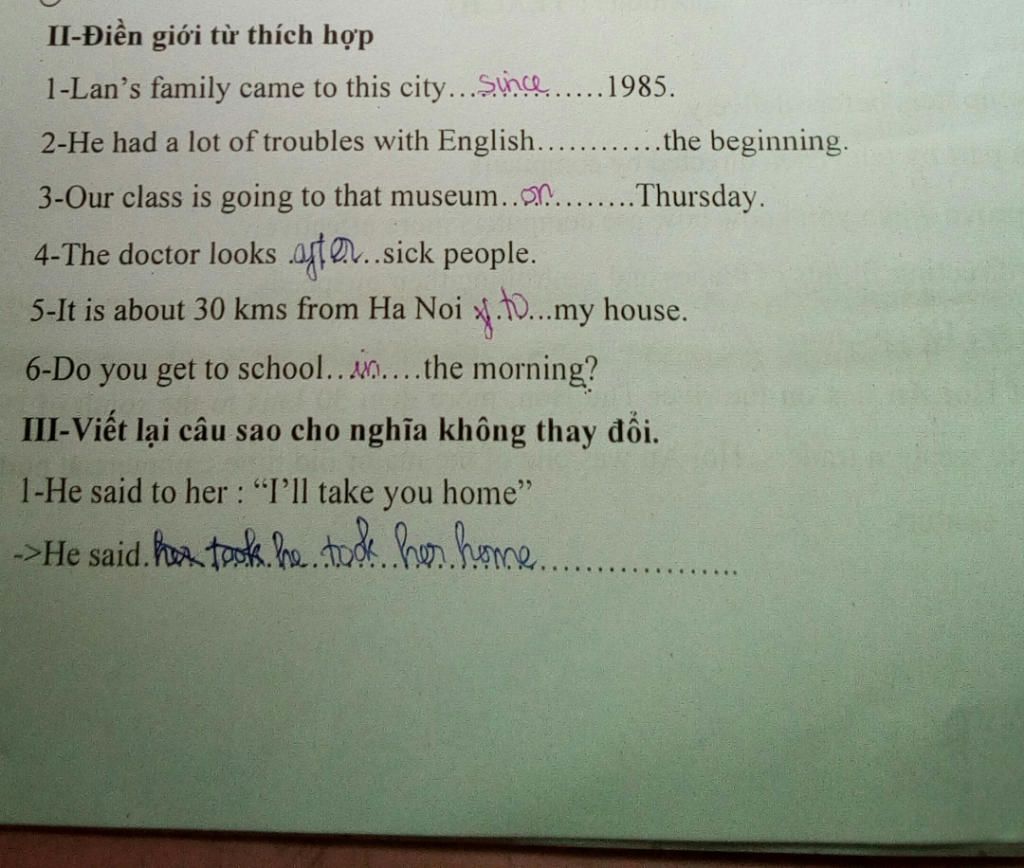 II-Điền giới từ thích hợp
1-Lan's family came to this city...since.......1985.
2-He had a lot of troubles with English............the beginning.
3-Our class is going to that museum..on........Thursday.
4-The doctor looks .after..sick people.
5-It is about 30 kms from Ha Noi .to...my house.
6-Do you get to school...in....the morning?
III-Viết lại câu sao cho nghĩa không thay đổi.
1-He said to her : “I'll take you home”
->He said.her took he took her home...................